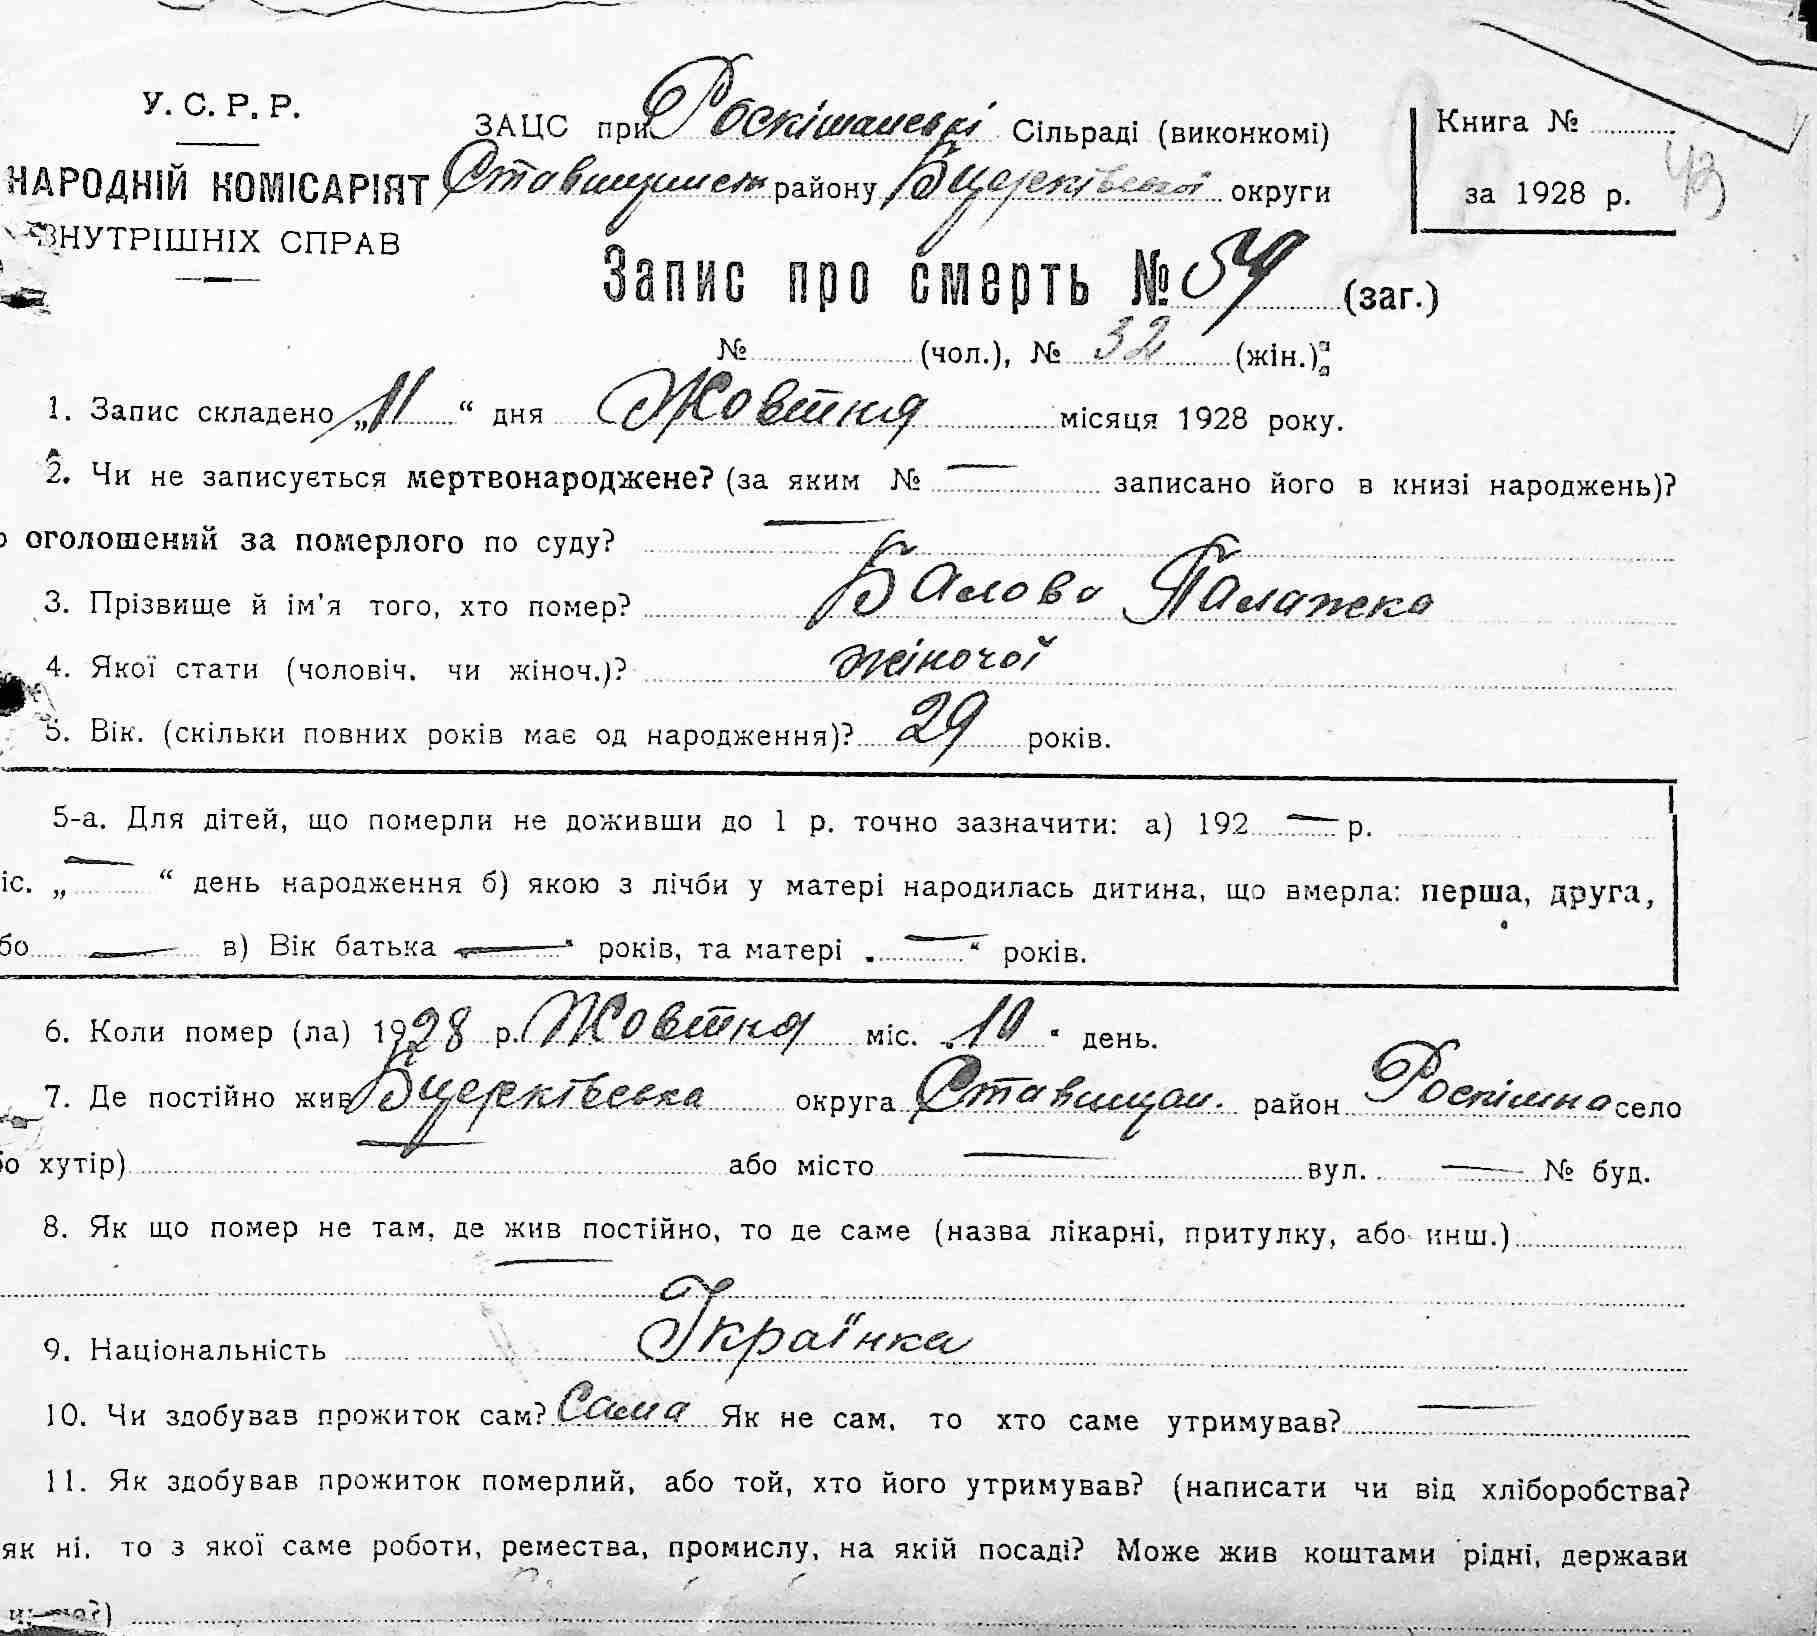 У. С. Р. Р.
НАРОДНІЙ КОМІСАРІЯТ
ВНУТРІШНІХ СПРАВ
ЗАЦС при Роскішанські Сільраді (виконкомі)
району Бцерківської округи
Книга №
за 1928 р.
Запис про смерть № 59 (заг.)
№ (чол.), № 32 (жін.)
1. Запис складено „11“ дня Жовтня місяця 1928 року.
2. Чи не записується мертвонароджене? (за яким № — записано його в книзі народжень)?
оголошений за померлого по суду? —
3. Прізвище й ім'я того, хто помер? Балова Палажка
4. Якої стати (чоловіч. чи жіноч.)? жіночої
5. Вік. (скільки повних років має од народження)? 29 років.
5-а. Для дітей, що померли не доживши до 1 р. точно зазначити: а) 192 — р.
іс. „ — “ день народження б) якою з лічби у матері народилась дитина, що вмерла: перша, друга,
бо — в) Вік батька — років, та матері „ — “ років.
6. Коли помер (ла) 1928 р. Жовтня міс. „10“ день.
7. Де постійно жив Бцерківська округа Ставищан. район Роскішна село
бо хутір) — або місто — вул. — № буд.
8. Як що помер не там, де жив постійно, то де саме (назва лікарні, притулку, або инш.)
—
9. Національність Українка
10. Чи здобував прожиток сам? Сама Як не сам, то хто саме утримував? —
11. Як здобував прожиток померлий, або той, хто його утримував? (написати чи від хліборобства?
як ні, то з якої саме роботи, ремества, промислу, на якій посаді? Може жив коштами рідні, держави